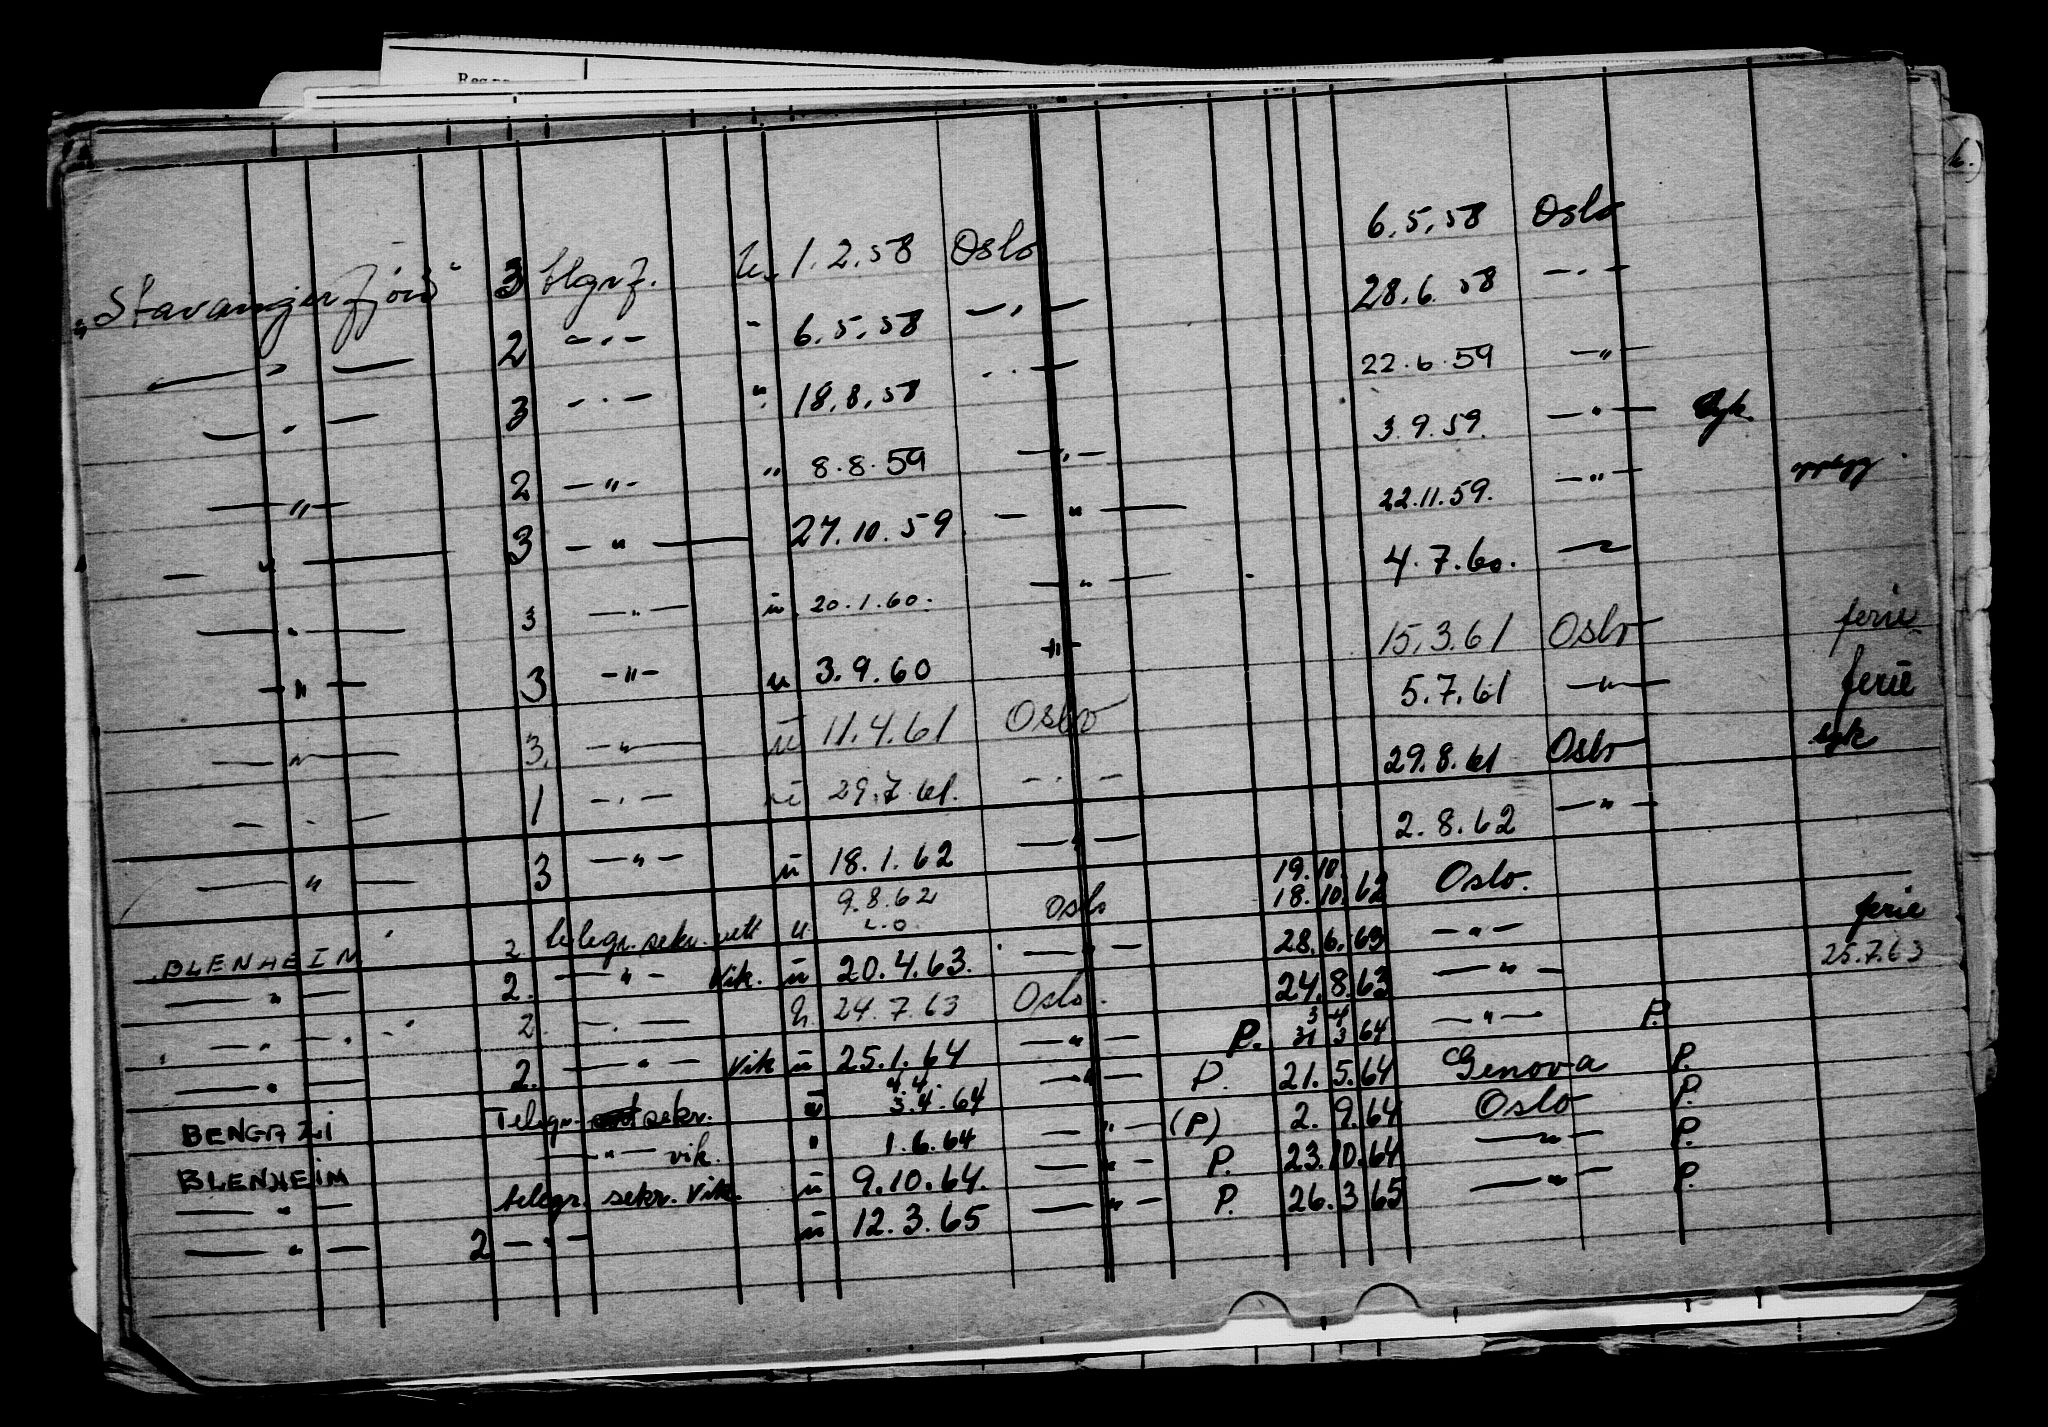 Reg.nr.
6.)
„Stavangerfjord“ 3 tlgrf. u. 1.2.58 Oslo 6.5.58 Oslo
— " — 2 — " — " 6.5.58 — " — 28.6.58 — " —
— " — 3 — " — " 18.8.58 — " — 22.6.59 — " —
— " — 2 — " — " 8.8.59 — " — 3.9.59. — " — syk.
— " — 3 — " — 27.10.59 — " — 22.11.59. — " —
— " — 3 — " — u 20.1.60. — " — 4.7.60. — " —
— " — 3 — " — u 3.9.60 — " — 15.3.61 Oslo ferie
— " — 3. — " — u 11.4.61 Oslo 5.7.61 — " — ferie
— " — 1 — " — u 29.7.61. — " — 29.8.61 Oslo syk
— " — 3 — " — u 18.1.62 — " — 2.8.62 — " —
BLENHEIM 2. telegr. sekr. u 9.8.62 Oslo 19.10. 18.10.62 Oslo.
— " — 2. — " — Vik. u 20.4.63. — " — 28.6.63 — " — ferie
— " — 2. — " — u. 24.7.63 Oslo. 24.8.63 — " — 25.7.63
— " — 2. — " — Vik u 25.1.64 — " — P. 3 4 31 3 64 — " — P.
BENGAZI Telegr. sekr. u 4.4. 3.4.64 — " — P. 21.5.64 Genova P.
BLENHEIM — " — vik. " 1.6.64 — " — (P) 2.9.64 Oslo P.
— " — telegr. sekr. Vik. u 9.10.64. — " — P. 23.10.64 — " — P.
— " — 2 — " — u 12.3.65 — " — P. 26.3 65 — " — P.